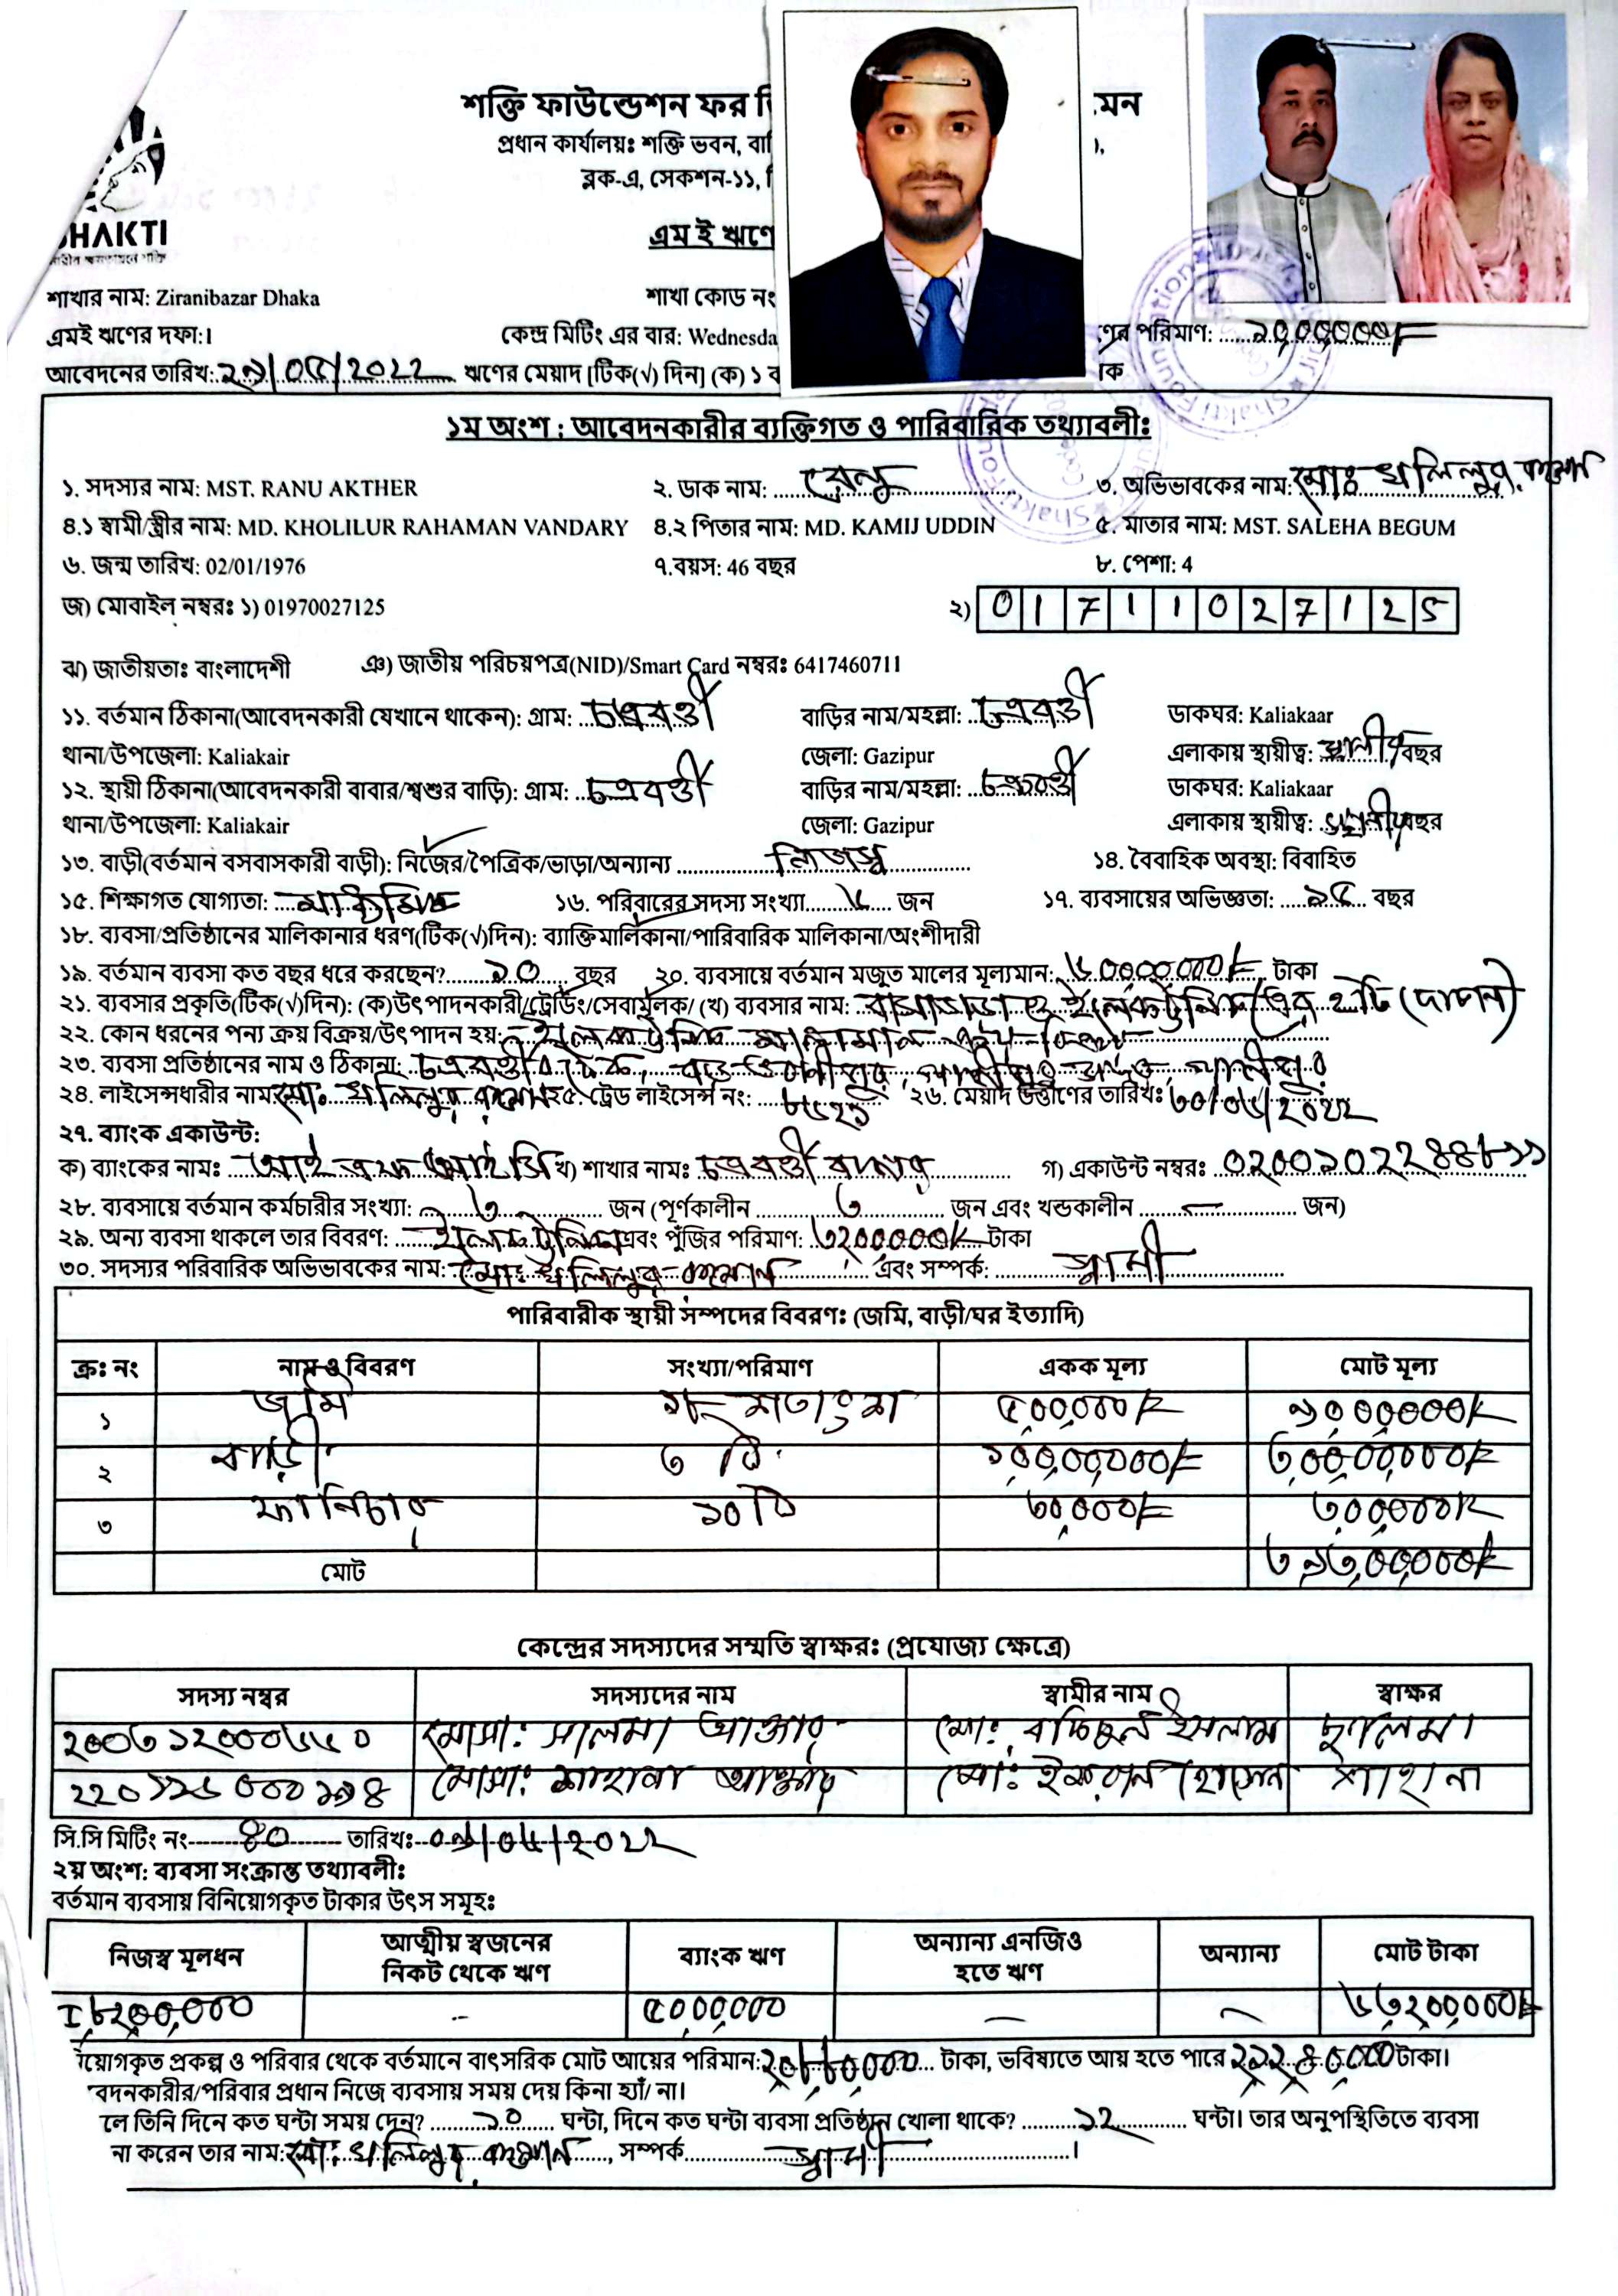 শক্তি ফাউন্ডেশন ফর
প্রধান কার্যালয়ঃ শক্তি ভবন,
ব্লক-এ, সেকশন-১১,
SHAKTI
এম ই ঋণে
শাখার নাম: Ziranibazar Dhaka শাখা কোড নং
এমই ঋণের দফা:। কেন্দ্র মিটিং এর বার: Wednesda ণের পরিমাণ: ১০,০০,০০০/=
আবেদনের তারিখ: ২৯/০৫/২০২২ ঋণের মেয়াদ [টিক(√) দিন] (ক) ১ ব
১ম অংশ : আবেদনকারীর ব্যক্তিগত ও পারিবারিক তথ্যাবলী:
১. সদস্যর নাম: MST. RANU AKTHER ২. ডাক নাম: রেনু ৩. অভিভাবকের নাম: মোঃ খলিলুর রহমান
৪.১ স্বামী/স্ত্রীর নাম: MD. KHOLILUR RAHAMAN VANDARY ৪.২ পিতার নাম: MD. KAMIJ UDDIN ৫. মাতার নাম: MST. SALEHA BEGUM
৬. জন্ম তারিখ: 02/01/1976 ৭.বয়স: 46 বছর ৮. পেশা: 4
জ) মোবাইল নম্বরঃ ১) 01970027125 ২) 01711027125
ঝ) জাতীয়তাঃ বাংলাদেশী ঞ) জাতীয় পরিচয়পত্র(NID)/Smart Card নম্বরঃ 6417460711
১১. বর্তমান ঠিকানা(আবেদনকারী যেখানে থাকেন): গ্রাম: চক্রবর্তী বাড়ির নাম/মহল্লা: চক্রবর্তী ডাকঘর: Kaliakaar
থানা/উপজেলা: Kaliakair জেলা: Gazipur এলাকায় স্থায়ীত্ব: স্থানীয় বছর
১২. স্থায়ী ঠিকানা(আবেদনকারী বাবার/শ্বশুর বাড়ি): গ্রাম: চক্রবর্তী বাড়ির নাম/মহল্লা: চক্রবর্তী ডাকঘর: Kaliakaar
থানা/উপজেলা: Kaliakair জেলা: Gazipur এলাকায় স্থায়ীত্ব: স্থানীয় বছর
১৩. বাড়ী(বর্তমান বসবাসকারী বাড়ী): নিজের/পৈত্রিক/ভাড়া/অন্যান্য নিজস্ব ১৪. বৈবাহিক অবস্থা: বিবাহিত
১৫. শিক্ষাগত যোগ্যতা: মাধ্যমিক ১৬. পরিবারের সদস্য সংখ্যা ৬ জন ১৭. ব্যবসায়ের অভিজ্ঞতা: ১৫ বছর
১৮. ব্যবসা/প্রতিষ্ঠানের মালিকানার ধরণ(টিক(√)দিন): ব্যাক্তিমালিকানা/পারিবারিক মালিকানা/অংশীদারী
১৯. বর্তমান ব্যবসা কত বছর ধরে করছেন? ১০ বছর ২০. ব্যবসায়ে বর্তমান মজুত মালের মূল্যমান: টাকা
২১. ব্যবসার প্রকৃতি(টিক(√)দিন): (ক)উৎপাদনকারী/ট্রেডিং/সেবামূলক/ (খ) ব্যবসার নাম: বাসাভাড়া ও ইলেকট্রনিক্স এর ২টি (দোকান)
২২. কোন ধরনের পন্য ক্রয় বিক্রয়/উৎপাদন হয়: ইলেকট্রনিক্স মালামাল
২৩. ব্যবসা প্রতিষ্ঠানের নাম ও ঠিকানা: চক্রবর্তীর টেক,
২৪. লাইসেন্সধারীর নাম: মোঃ খলিলুর রহমান ২৫. ট্রেড লাইসেন্স নং: ২৬. মেয়াদ উত্তীণের তারিখঃ ৩০/০৬/২০২২
২৭. ব্যাংক একাউন্ট:
ক) ব্যাংকের নামঃ আই এফ আই সি খ) শাখার নামঃ চক্রবর্তী বাজার গ) একাউন্ট নম্বরঃ
২৮. ব্যবসায়ে বর্তমান কর্মচারীর সংখ্যা: ৩ জন (পূর্ণকালীন ৩ জন এবং খন্ডকালীন – জন)
২৯. অন্য ব্যবসা থাকলে তার বিবরণ: ইলেকট্রনিক্স এবং পুঁজির পরিমাণ: টাকা
৩০. সদস্যর পারিবারিক অভিভাবকের নাম: মোঃ খলিলুর রহমান এবং সম্পর্ক: স্বামী
পারিবারীক স্থায়ী সম্পদের বিবরণ: (জমি, বাড়ী/ঘর ইত্যাদি)
ক্রঃ নং নাম ও বিবরণ সংখ্যা/পরিমাণ একক মূল্য মোট মূল্য
১ জমি ১৮ শতাংশ ৫,০০,০০০/= ৯০,০০,০০০/=
২ বাড়ী ৩ টি ১,০০,০০,০০০/= ৩,০০,০০,০০০/=
৩ ফার্নিচার ১০টি ৩০,০০০/= ৩,০০,০০০/=
মোট ৩,৯৩,০০,০০০/=
কেন্দ্রের সদস্যদের সম্মতি স্বাক্ষরঃ (প্রযোজ্য ক্ষেত্রে)
সদস্য নম্বর সদস্যদের নাম স্বামীর নাম স্বাক্ষর
মোসাঃ সালমা আক্তার ইসলাম ছালমা
মোসাঃ শাহানা আক্তার মোঃ ইমরান হোসেন শাহানা
সি.সি মিটিং নং ৪০ তারিখঃ ০৯/০৬/২০২২
২য় অংশ: ব্যবসা সংক্রান্ত তথ্যাবলী:
বর্তমান ব্যবসায় বিনিয়োগকৃত টাকার উৎস সমূহঃ
নিজস্ব মূলধন আত্মীয় স্বজনের নিকট থেকে ঋণ ব্যাংক ঋণ অন্যান্য এনজিও হতে ঋণ অন্যান্য মোট টাকা
– ৫০০,০০০ – –
য়োগকৃত প্রকল্প ও পরিবার থেকে বর্তমানে বাৎসরিক মোট আয়ের পরিমান: টাকা, ভবিষ্যতে আয় হতে পারে টাকা।
বদনকারীর/পরিবার প্রধান নিজে ব্যবসায় সময় দেয় কিনা হ্যাঁ/ না।
লে তিনি দিনে কত ঘন্টা সময় দেন? ১০ ঘন্টা, দিনে কত ঘন্টা ব্যবসা প্রতিষ্ঠান খোলা থাকে? ১২ ঘন্টা। তার অনুপস্থিতিতে ব্যবসা
না করেন তার নাম: মোঃ খলিলুর রহমান, সম্পর্ক স্বামী।